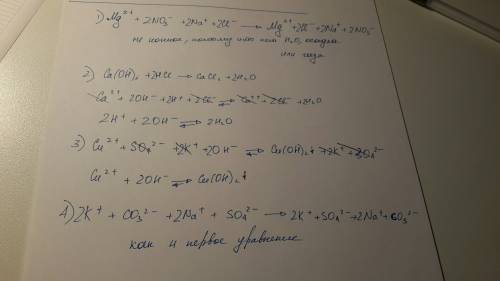 1) Mg²⁺ + 2NO₃⁻ + 2Na⁺ + 2Cl⁻ → Mg²⁺ + 2Cl⁻ + 2Na⁺ + 2NO₃⁻
не ионное, поэтому что нет H₂O, осадка
или газа
2) Ca(OH)₂ + 2HCl → CaCl₂ + 2H₂O
Ca²⁺ + 2OH⁻ + 2H⁺ + 2Cl⁻ ⇌ Ca²⁺ + 2Cl⁻ + 2H₂O
2H⁺ + 2OH⁻ ⇌ 2H₂O
3) Cu²⁺ + SO₄²⁻ + 2K⁺ + 2OH⁻ ⇌ Cu(OH)₂↓ + 2K⁺ + SO₄²⁻
Cu²⁺ + 2OH⁻ ⇌ Cu(OH)₂↓
4) 2K⁺ + CO₃²⁻ + 2Na⁺ + SO₄²⁻ → 2K⁺ + SO₄²⁻ + 2Na⁺ + CO₃²⁻
как и первое уравнение